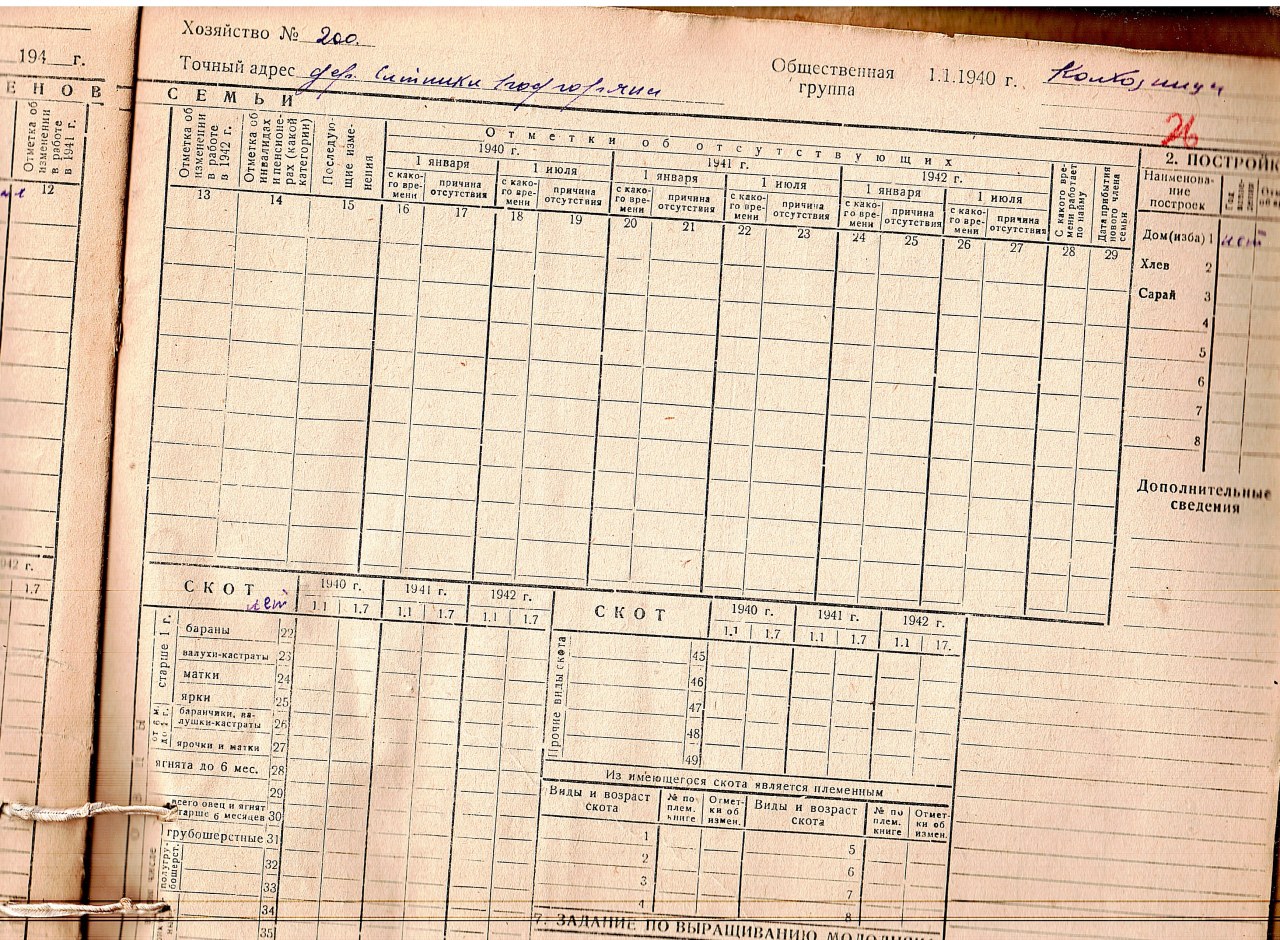 Хозяйство № 200.
194__г.
Точный адрес дер. Ситники
Общественная группа 1.1.1940 г.
26
ЕНОВ
СЕМЬИ
Отметка об изменении в работе в 1941 г.
12
Отметка об изменении в работе в 1942 г.
Отметка об инвалидах и пенсионерах (какой категории)
Последую-
щие изме-
нения
Отметки об отсутствующих
1940 г. 1941 г. 1942 г.
1 января 1 июля 1 января 1 июля 1 января 1 июля
с како-го вре-мени причина отсутствия с како-го вре-мени причина отсутствия с како-го вре-мени причина отсутствия с како-го вре-мени причина отсутствия с како-го вре-мени причина отсутствия с како-го вре-мени причина отсутствия
С какого вре-мени работает по найму
Дата прибытия нового члена семьи
13 14 15 16 17 18 19 20 21 22 23 24 25 26 27 28 29
2. ПОСТРОЙК
Наименова-
ние
построек
Дом(изба) 1 нет
Хлев 2
Сарай 3
4
5
6
7
8
Дополнительные
сведения
942 г.
1.7
СКОТ нет 1940 г. 1941 г. 1942 г.
1.1 1.7 1.1 1.7 1.1 1.7
старше 1 г.
бараны 22
валухи-кастраты 23
матки 24
ярки 25
от 6 м. до 1 г.
баранчики, ва-
лушки-кастраты 26
ярочки и матки 27
ягнята до 6 мес. 28
29
всего овец и ягнят
старше 6 месяцев 30
грубошерстные 31
полугру-
бошерст.
32
33
34
35
СКОТ 1940 г. 1941 г. 1942 г.
1.1 1.7 1.1 1.7 1.1 17.
Прочие виды скота
45
46
47
48
49
Из имеющегося скота является племенным
Виды и возраст скота № по плем. книге Отмет-ки об измен. Виды и возраст скота № по плем. книге Отмет-ки об измен.
1 5
2 6
3 7
4 8
7. ЗАДАНИЕ ПО ВЫРАЩИВАНИЮ МОЛОДНЯКА